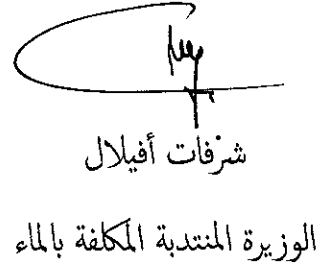 شرفات أفيلال
الوزيرة المنتدبة المكلفة بالماء